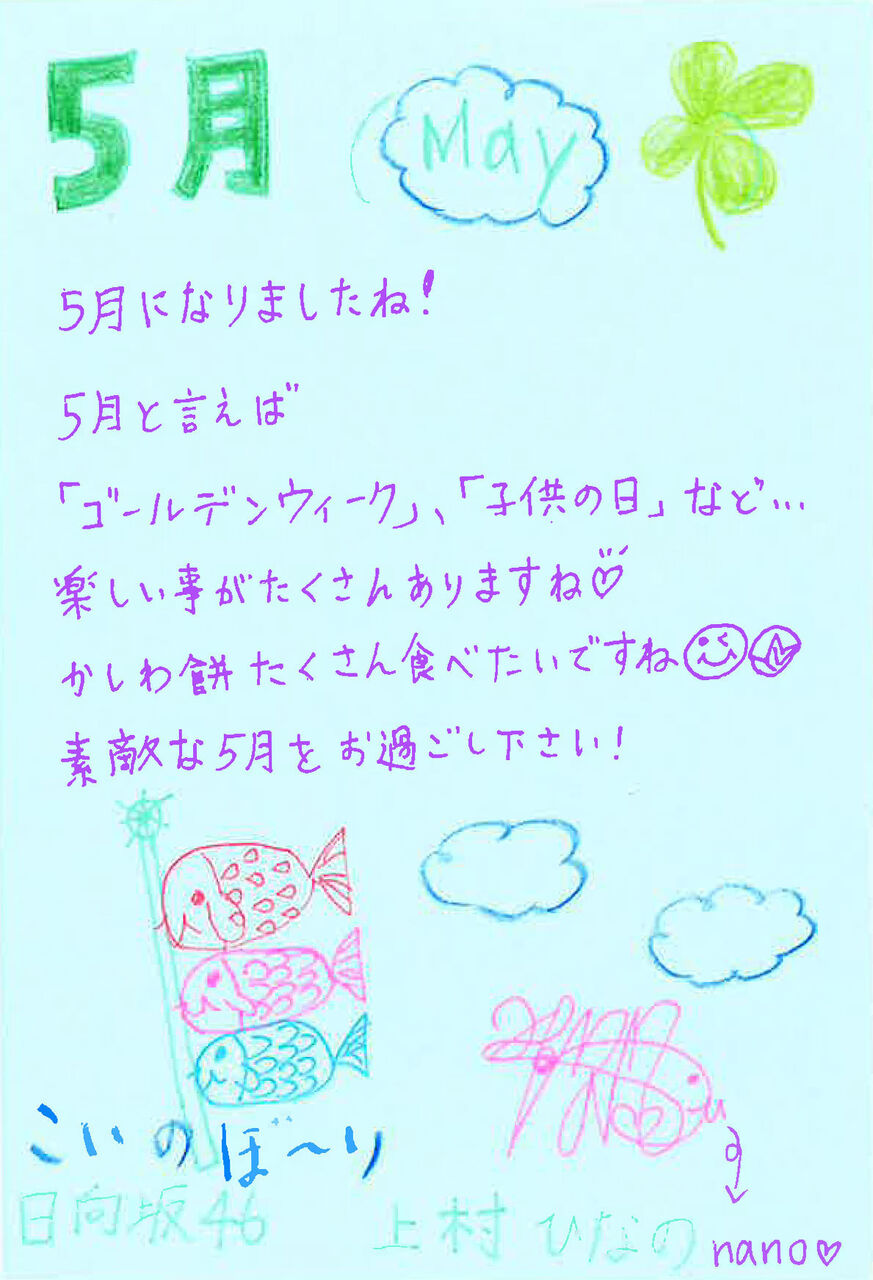 5月
May
5月になりましたね!
5月と言えば
「ゴールデンウィーク」、「子供の日」など…
楽しい事がたくさんありますね♡
かしわ餅たくさん食べたいですね
素敵な5月をお過ごし下さい!
こいのぼ〜り
日向坂46
上村ひなの
nano♡